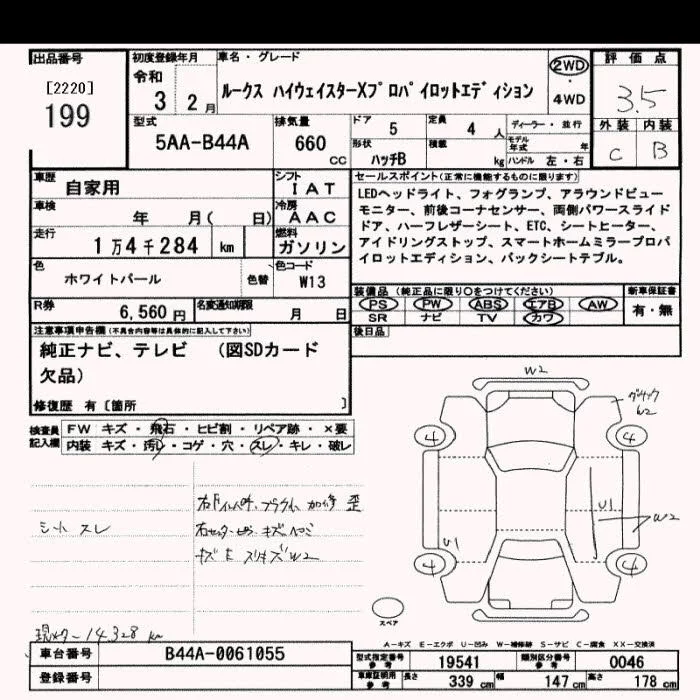 出品番号 初度登録年月 車名・グレード 評価点
[2220] 令和 2WD
199 3 2月 ルークス ハイウェイスターXプロパイロットエディション 4WD 3.5
型式 排気量 ドア 5 定員 4人 ディーラー・並行 外装 内装
5AA-B44A 660 CC 形状 ハッチB 積載 kg モデル年式 年 ハンドル 左・右 C B
車歴 自家用 シフト IAT セールスポイント(正常に機能するものに限ります)
車検 年 月( 日) 冷房 AAC LEDヘッドライト、フォグランプ、アラウンドビュー
モニター、前後コーナセンサー、両側パワースライド
走行 1万4千284 km 燃料 ガソリン ドア、ハーフレザーシート、ETC、シートヒーター、
アイドリングストップ、スマートホームミラープロパ
色 ホワイトパール 色替 色コード W13 イロットエディション、バックシートテーブル。
装備品(純正品に限り○をつけてください) 新車保証書
R券 6,560円 名変通知期限 月 日 PS PW ABS エアB AW 有・無
SR ナビ TV カワ
注意事項申告欄(不具合内容等は具体的に記入して下さい) 後日品
純正ナビ、テレビ (図SDカード
欠品)
修復歴 有[箇所 ]
検査員記入欄 FW キズ・飛石・ヒビ割・リペア跡・×要
内装 キズ・汚レ・コゲ・穴・スレ・キレ・破レ
W2
W2
4 4
U1 W2
U1
4 4
シート スレ
キズ E スリキズ W2
スペア
現メーター14,328 km
A-キズ E-エクボ U-凹み W-補修跡 S-サビ C-腐食 XX-交換済
車台番号 B44A-0061055 型式指定番号 参考 19541 類別区分番号 参考 0046
登録番号 車庫証明用 参考 長さ 339 cm 幅 147 cm 高さ 178 cm